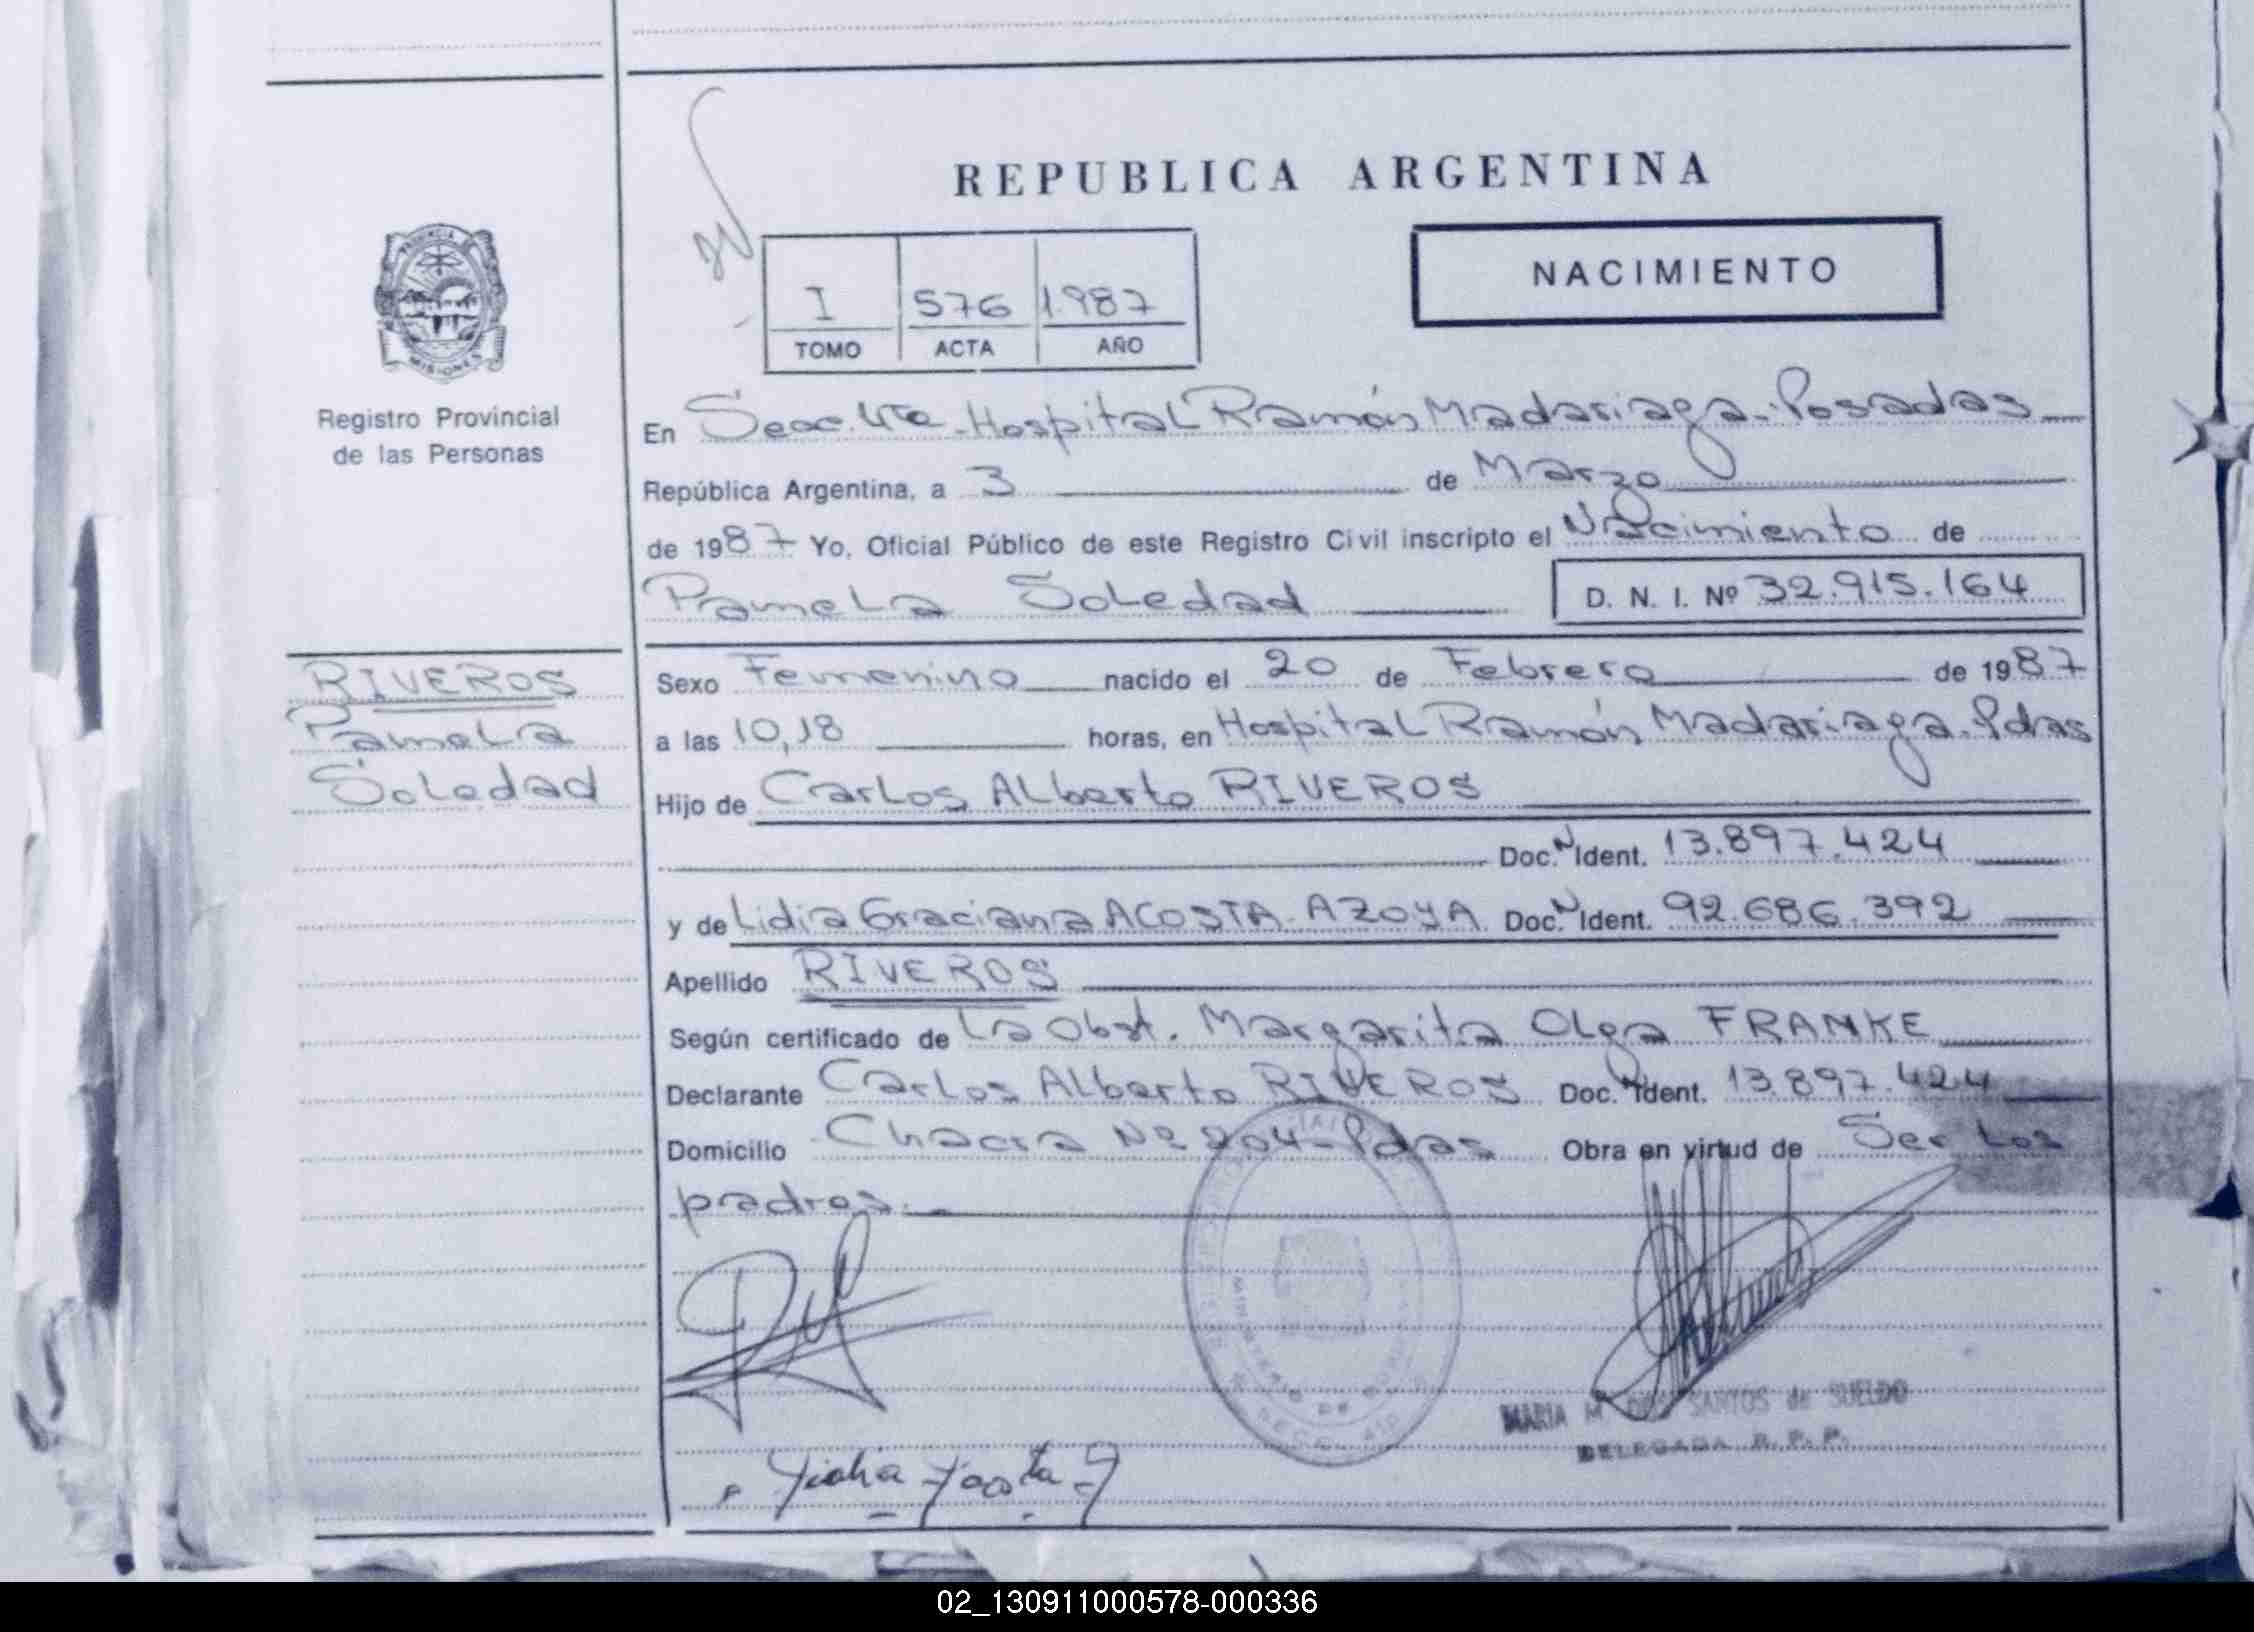 REPUBLICA ARGENTINA
NACIMIENTO
I 576 1.987
TOMO ACTA AÑO
PROVINCIA DE
MISIONES
Registro Provincial
de las Personas
En Secc. 4ta. Hospital Ramón Madariaga. Posadas
República Argentina, a 3 de Marzo
de 1987 Yo, Oficial Público de este Registro Civil inscripto el Nacimiento de
Pamela Soledad D. N. I. Nº 32.915.164
RIVEROS
Pamela
Soledad
Sexo Femenino nacido el 20 de Febrero de 1987
a las 10,18 horas, en Hospital Ramón Madariaga. Pdas
Hijo de Carlos Alberto RIVEROS
Doc. N Ident. 13.897.424
y de Lidia Graciana ACOSTA-AZOYA Doc. N Ident. 92.686.392
Apellido RIVEROS
Según certificado de La Obst. Margarita Olga FRANKE
Declarante Carlos Alberto RIVEROS Doc. N Ident. 13.897.424
Domicilio Chacra Nº 204-Pdas Obra en virtud de Ser Los
padres.
MINISTERIO DE
MARIA M DOS SANTOS de SUELDO
DELEGADA R. P. P.
02_130911000578-000336